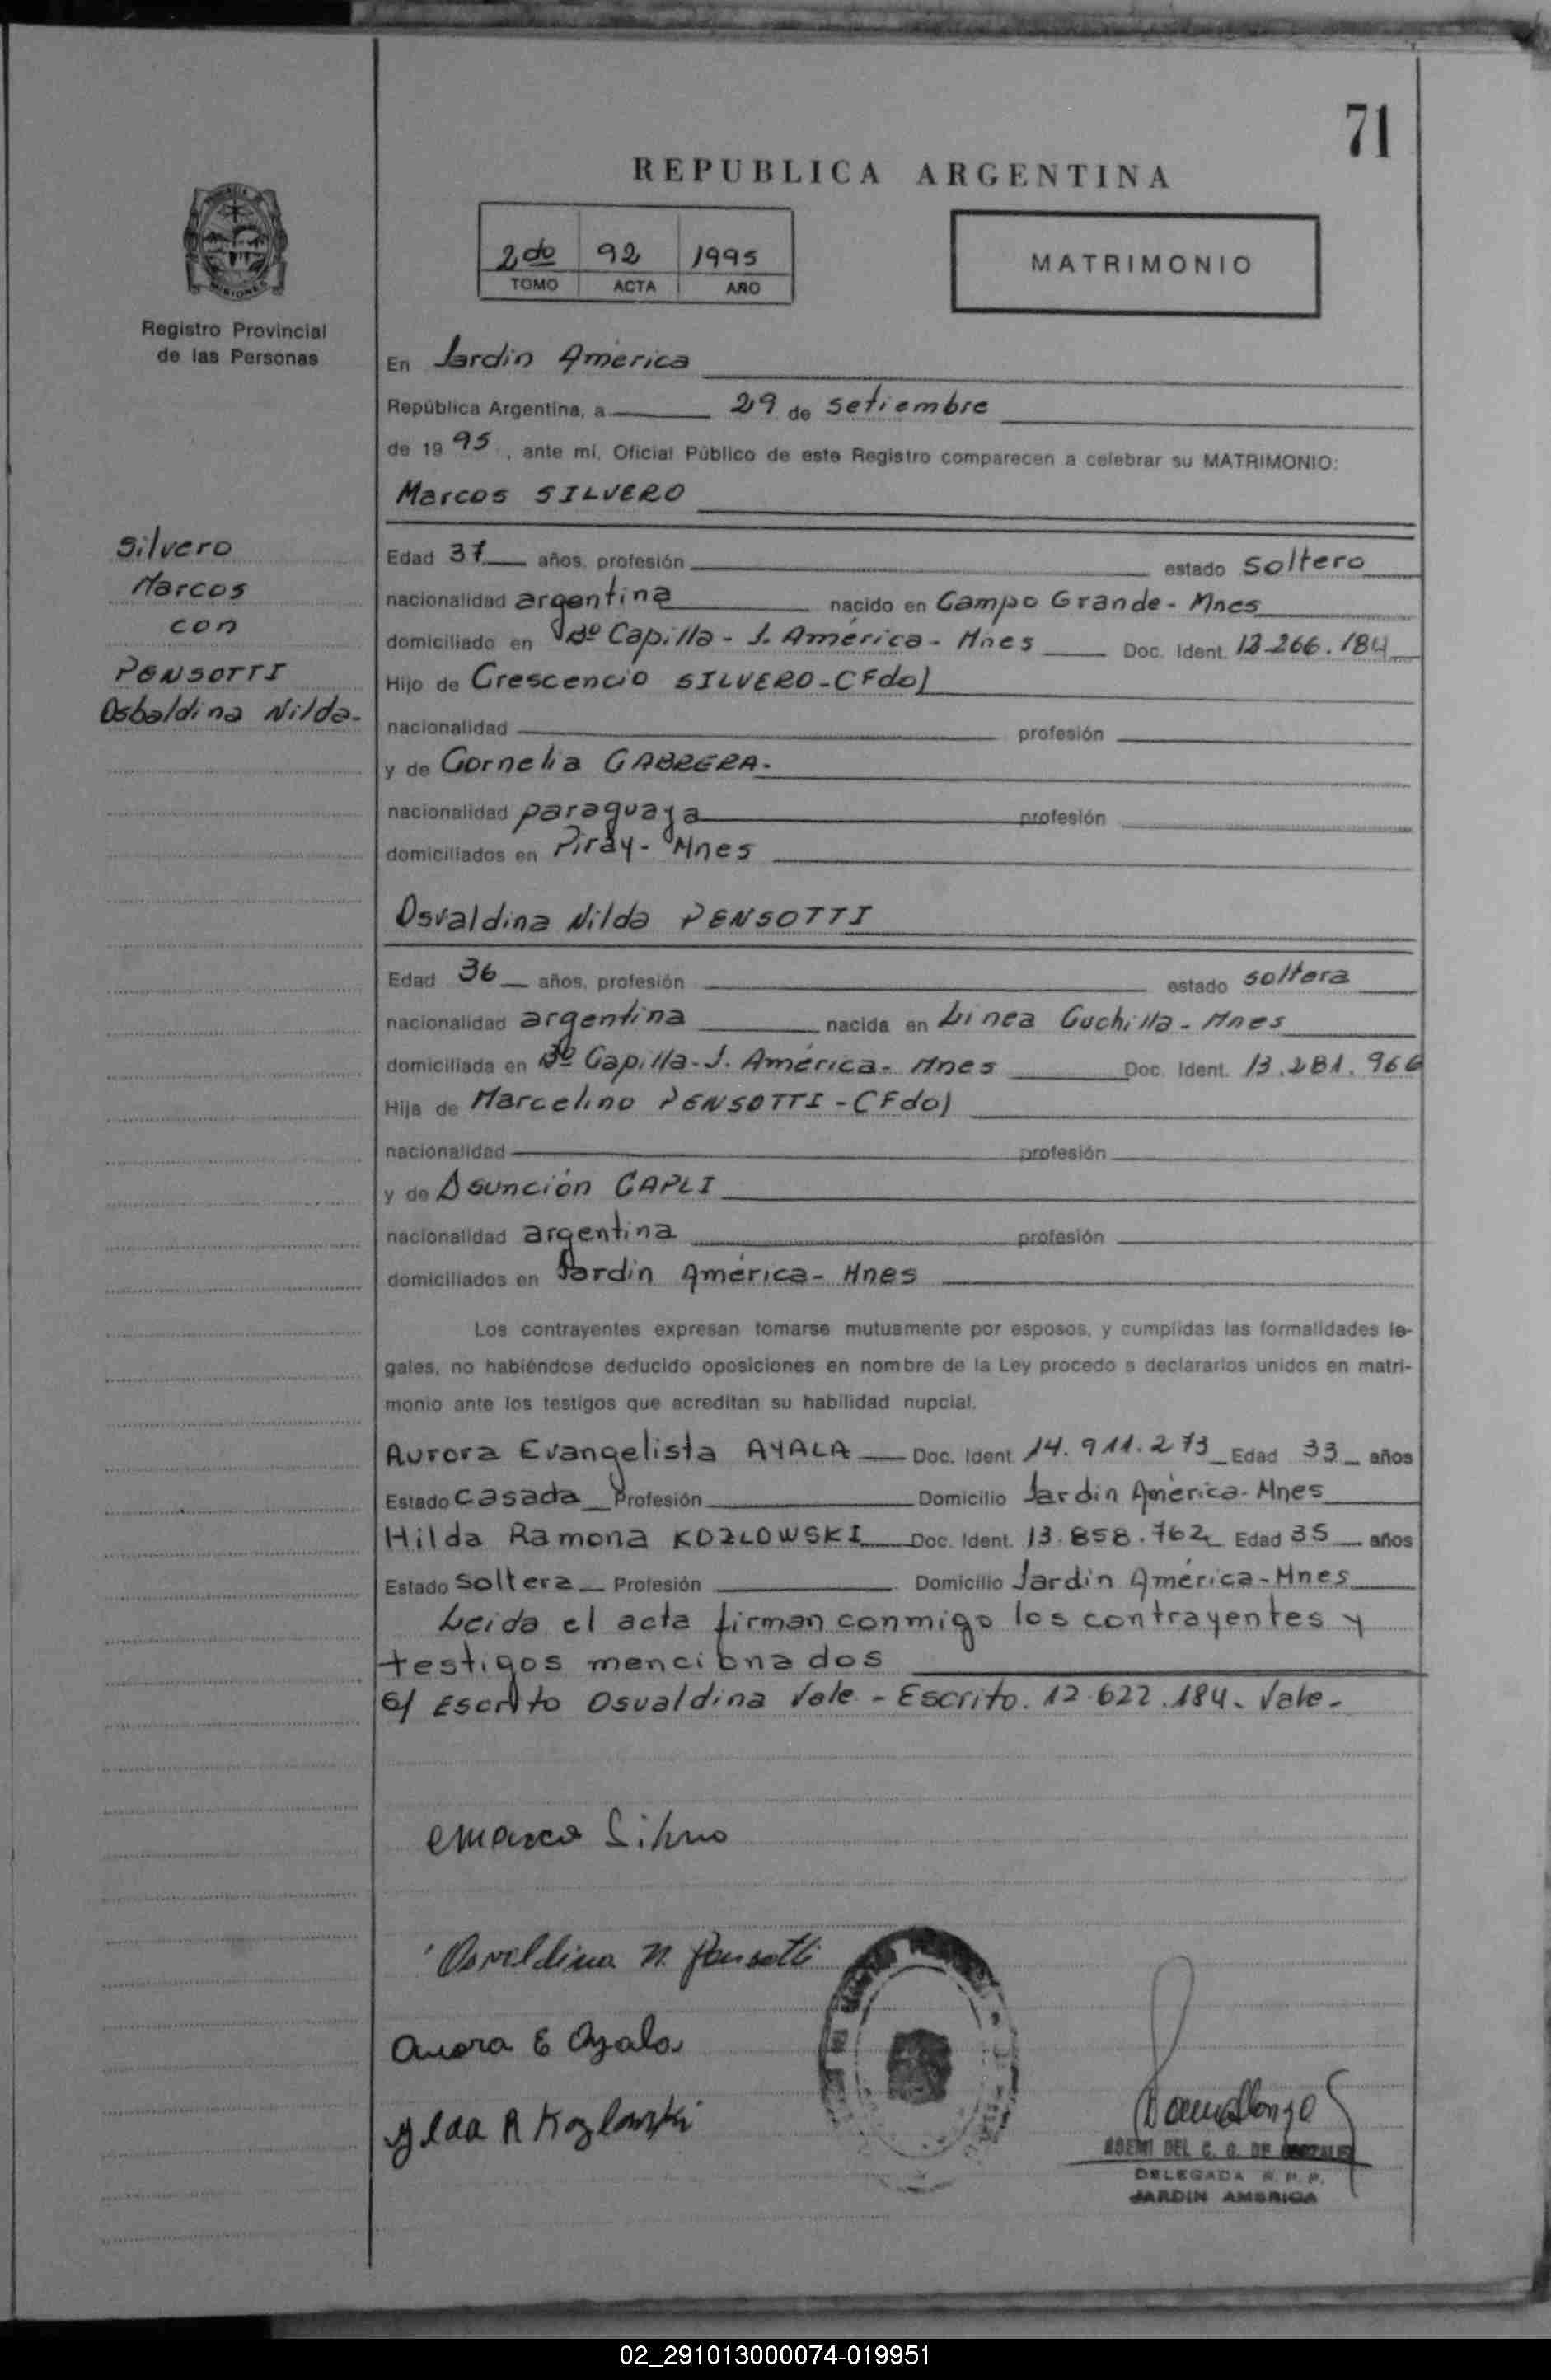 71
REPUBLICA ARGENTINA
2do 92 1995
TOMO ACTA AÑO
MATRIMONIO
MISIONES
Registro Provincial
de las Personas
Silvero
Marcos
con
PENSOTTI
Osbaldina Nilda-
En Jardin América
República Argentina, a 29 de setiembre
de 1995, ante mí, Oficial Público de este Registro comparecen a celebrar su MATRIMONIO:
Marcos SILVERO
Edad 37 años, profesión estado soltero
nacionalidad argentina nacido en Campo Grande- Mnes
domiciliado en Bº Capilla- J. América- Mnes Doc. Ident. 184
Hijo de Crescencio SILVERO-(Fdo)
nacionalidad profesión
y de Cornelia CABRERA.
nacionalidad paraguaya profesión
domiciliados en Piray- Mnes
Osvaldina Nilda PENSOTTI
Edad 36 años, profesión estado soltera
nacionalidad argentina nacida en Linea Cuchilla- Mnes
domiciliada en Bº Capilla-J. América- Mnes Doc. Ident. 13.281.966
Hija de Marcelino PENSOTTI-(Fdo)
nacionalidad profesión
y de Asunción CAPLI
nacionalidad argentina profesión
domiciliados en Jardin América- Mnes
Los contrayentes expresan tomarse mutuamente por esposos, y cumplidas las formalidades le-
gales, no habiéndose deducido oposiciones en nombre de la Ley procedo a declararlos unidos en matri-
monio ante los testigos que acreditan su habilidad nupcial.
Aurora Evangelista AYALA Doc. Ident. 14.911.273 Edad 33 años
Estado casada Profesión Domicilio Jardin América- Mnes
Hilda Ramona KOZLOWSKI Doc. Ident. 13.858.762 Edad 35 años
Estado soltera Profesión Domicilio Jardin América-Mnes
Leida el acta firman conmigo los contrayentes y
testigos mencionados
E/ Escrito Osvaldina Vale - Escrito. 12.622.184. Vale-
Osvaldina N. Pensotti
Aurora E Ayala
Ylda R Kozlowski
NOEMI DEL C. G. DE GONZALEZ
DELEGADA R. P. P.
JARDIN AMERICA
02_291013000074-019951